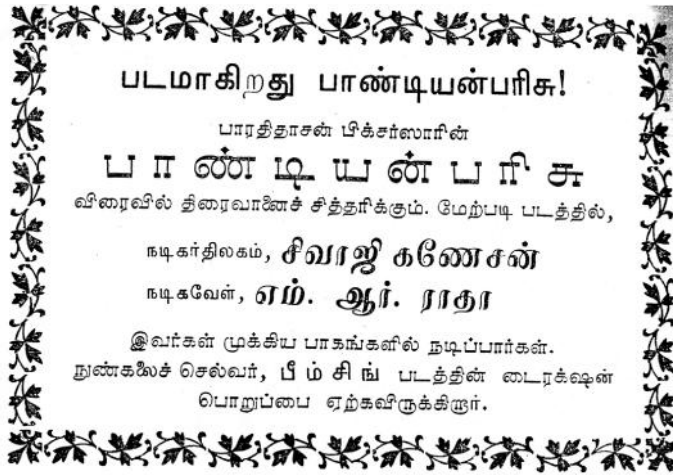 படமாகிறது பாண்டியன்பரிசு!
பாரதிதாசன் பிக்சர்ஸாரின்
பாண்டியன்பரிசு
விரைவில் திரைவானைச் சித்தரிக்கும். மேற்படி படத்தில்,
நடிகர்திலகம், சிவாஜி கணேசன்
நடிகவேள், எம். ஆர். ராதா
இவர்கள் முக்கிய பாகங்களில் நடிப்பார்கள்.
நுண்கலைச் செல்வர், பீம்சிங் படத்தின் டைரக்‌ஷன்
பொறுப்பை ஏற்கவிருக்கிறார்.